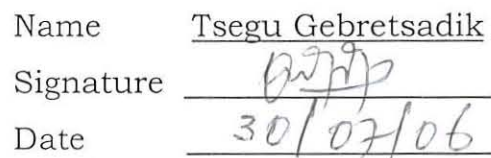 Name Tsegu Gebretsadik
Signature
Date 30/07/06